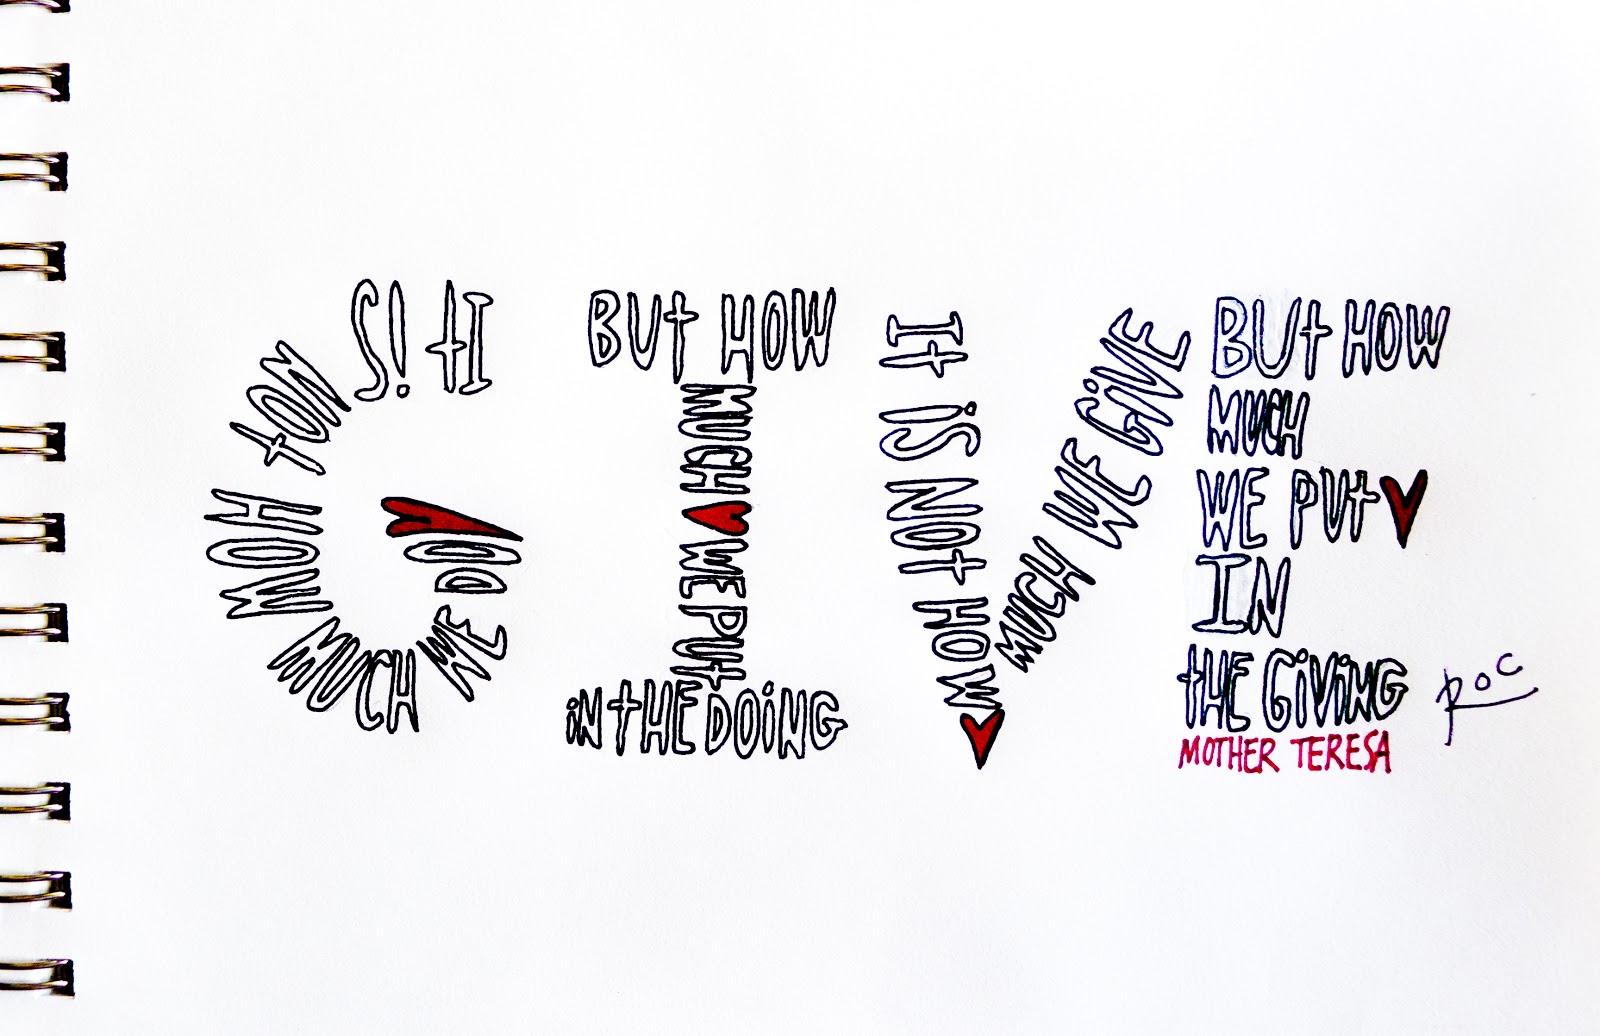 IT IS NOT HOW MUCH WE DO
BUT HOW
MUCH ♥ WE PUT
IN THE DOING
IT IS NOT HOW
MUCH WE GIVE
BUT HOW
MUCH
WE PUT ♥
IN
THE GIVING
MOTHER TERESA
ROC